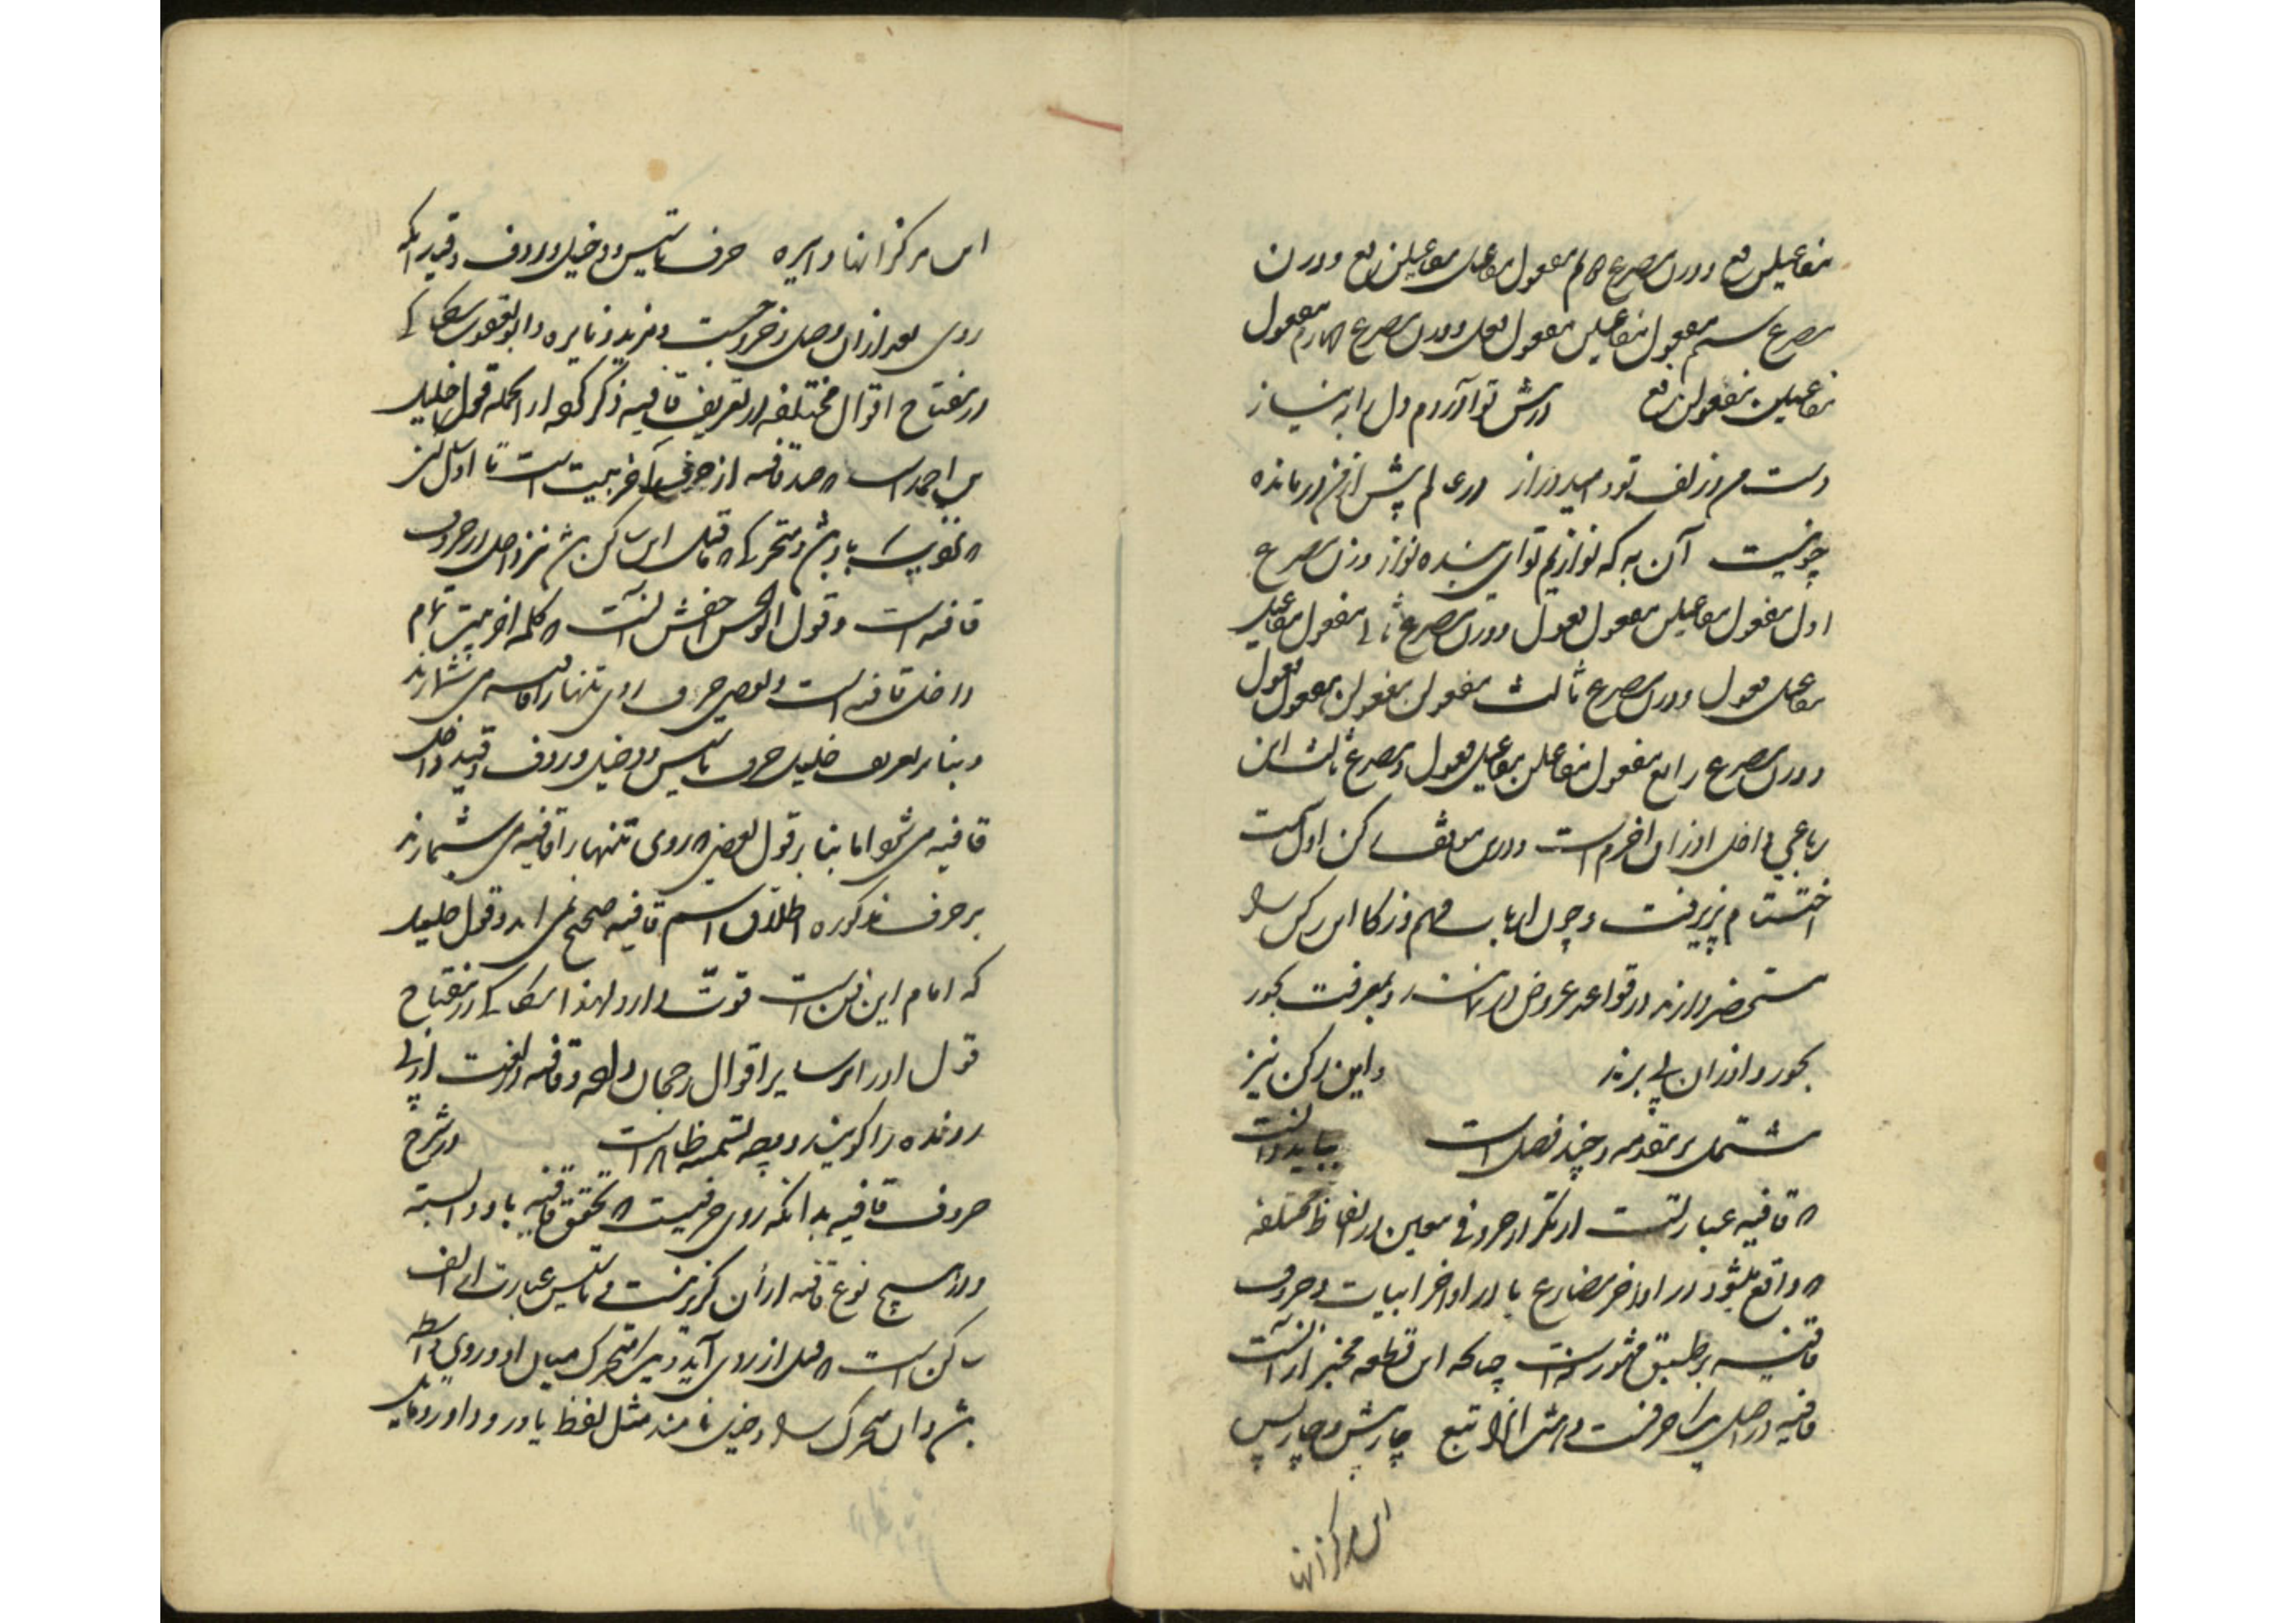 مفاعیلن فع و وزن مصرع دوم مفعول مفاعیل مفاعیلن فع و وزن
مصرع سیم مفعول مفاعیلن مفعول فعل و وزن مصرع چهارم مفعول
مفاعیلن مفعولن فع درش تو آوردم دل را به نیاز
دست من و زلف تو و امید دراز در عالم پیش از من درمانده
چو نیست آن به که نوازیم تو ای بنده نواز وزن مصرع
اول مفعول مفاعیلن مفعول فعول و وزن مصرع ثانی مفعول مفاعیل
مفاعیل فعول و وزن مصرع ثالث مفعولن مفعولن مفعول فعول
و وزن مصرع رابع مفعول مفاعلن مفاعیل فعول و مصرع ثالث این
رباعی داخل اوزان اخرم است و درین موقف رکن اول سمت
اختتام پذیرفت و چون ارباب فهم و ذکا این رکن را
مستحضر دارند در قواعد عروض و بمعرفت بحور
بحور و اوزان پی برند و این رکن نیز
مشتمل بر مقدمه و چند فصل است بباید دانست
که قافیه عبارتست از تکرار حروفی معین در الفاظ مختلفه
که واقع بشود در اواخر مصاریع یا در اواخر ابیات و حروف
قافیه بر طبق مشهور نه است چنانکه این قطعه مخبر از آنست
قافیه در اصل یک حرفست و هشت آنرا تبع چار پیش و چار پس
این مرکز آنها
این مرکز آنها دایره حرف تاسیس و دخیل و ردف و قید آنکه
روی بعد ازان وصل و خروجست و مزید و نایره و ابو یعقوب سکاکی
در مفتاح اقوال مختلفه در تعریف قافیه ذکر کرده از آنجمله قول خلیل
بن احمد است که حد قافیه از حرف آخر بیت است تا اول ساکنی
که نزدیک باو باشد و متحرکی که ماقبل این ساکن باشد نیز داخل در حروف
قافیه است و قول ابو الحسن اخفش آنست که کلمه آخر بیت تمام
داخل قافیه است و بعضی حرف روی تنها را قافیه می شمارند
و بنا بر تعریف خلیل حرف تاسیس و دخیل و ردف و قید داخل
قافیه می شود اما بنا بر قول بعضی که روی تنها را قافیه می شمارند
بر حرف مذکوره اطلاق اسم قافیه صحیح نمی آید و قول خلیل
که امام این فن است قوت دارد و لهذا سکاکی در مفتاح
قول او را بر سایر اقوال رجحان داده و قافیه در لغت از پی
رونده را گویند و وجه تسمیه ظاهر است در شرح
حروف قافیه بدانکه روی حرفیست که تحقق قافیه باو وابسته
و در هیچ نوع قافیه از آن گزیر نیست و تاسیس عبارت از الف
ساکن است که قبل از روی آید و یک متحرک میان او و روی واسطه
باشد و آن متحرک را دخیل نامند مثل لفظ یاور و داور و باید